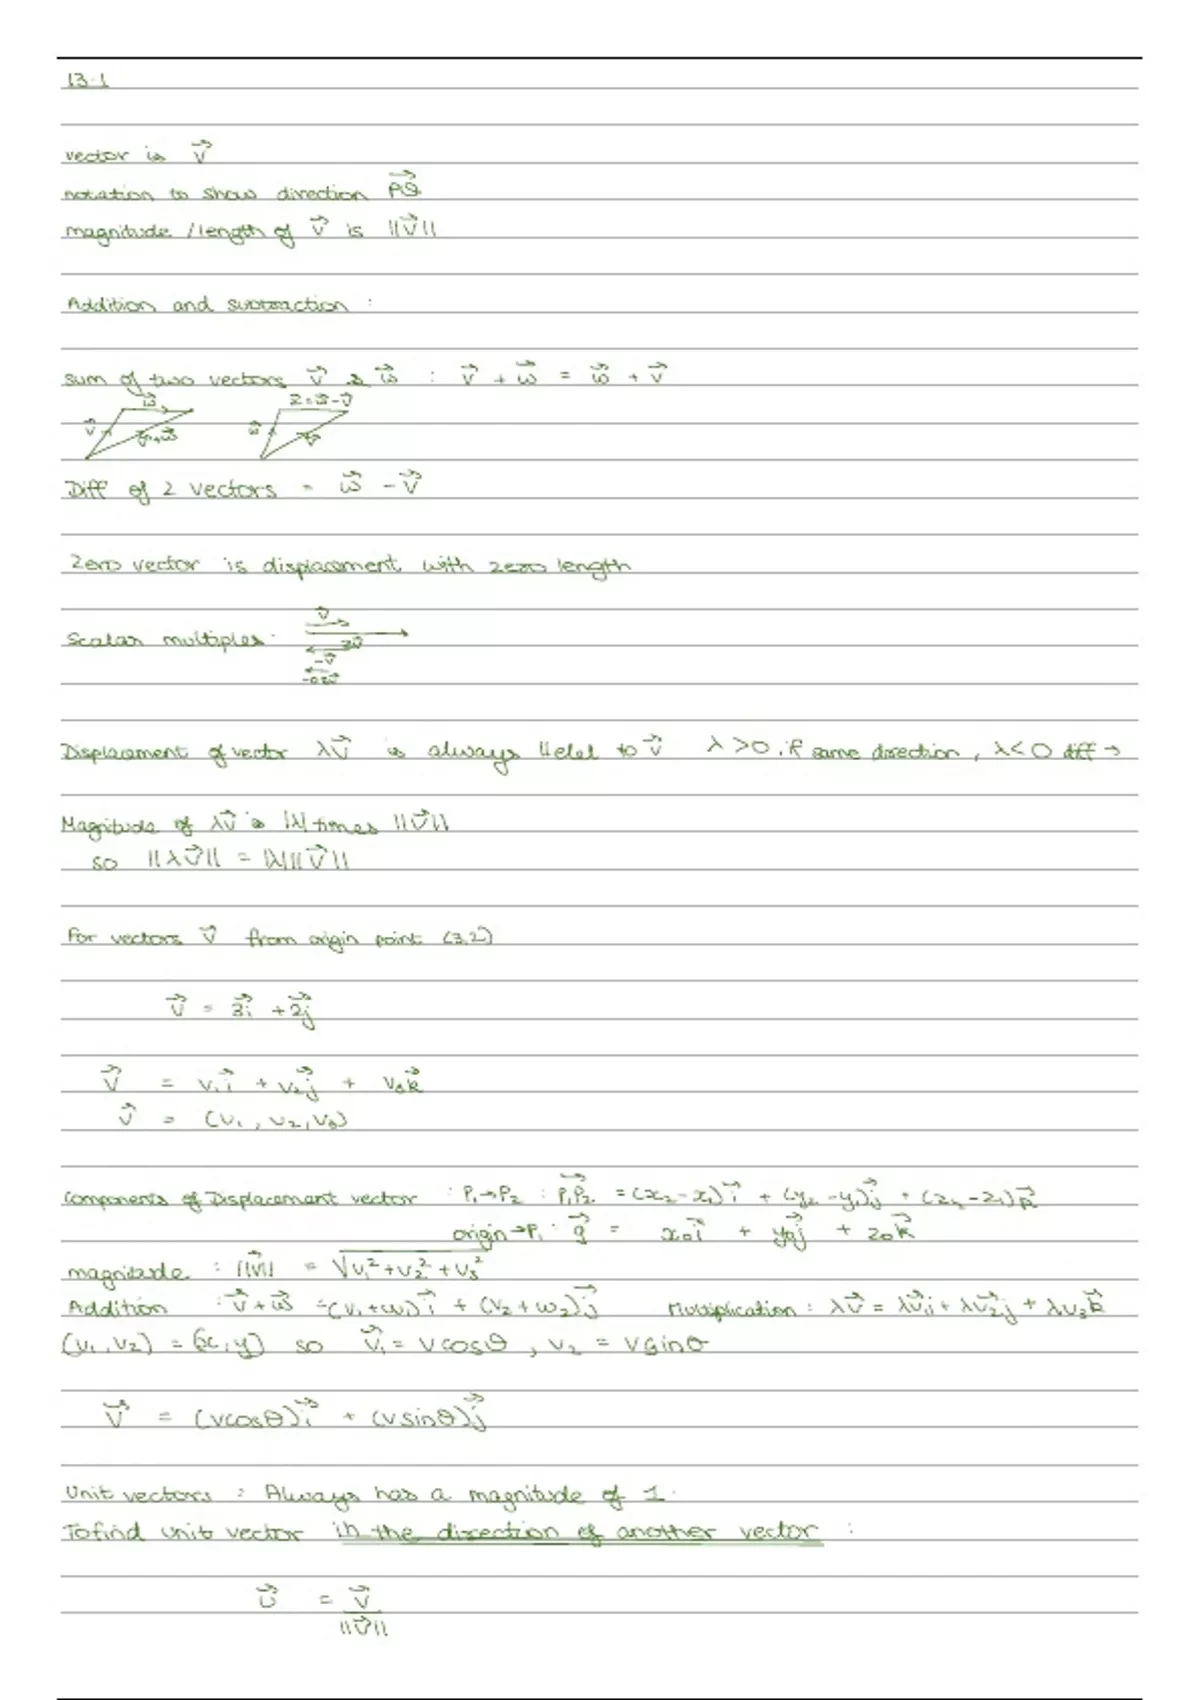 13.1
vector is v⃗
notation to show direction PQ⃗
magnitude / length of v⃗ is ||v⃗||
Addition and subtraction :
sum of two vectors v⃗ & w⃗ : v⃗ + w⃗ = w⃗ + v⃗
w⃗ z = w⃗ - v⃗
v⃗ v⃗+w⃗ w⃗ v⃗
Diff of 2 vectors = w⃗ - v⃗
Zero vector is displacement with zero length
v⃗
Scalar multiples: 2v⃗
-v⃗
Displacement of vector λv⃗ is always llelel to v⃗ λ>0, if same direction, λ<0 diff →
Magnitude of λv⃗ is |λ| times ||v⃗||
so ||λv⃗|| = |λ| ||v⃗||
For vectors v⃗ from origin point (3,2)
v⃗ = 3i⃗ + 2j⃗
v⃗ = v₁i⃗ + v₂j⃗ + v₃k⃗
v⃗ = (v₁, v₂, v₃)
Components of Displacement vector : P₁→P₂ : P₁P₂⃗ = (x₂-x₁)i⃗ + (y₂-y₁)j⃗ + (z₂-z₁)k⃗
origin→P₁ : g⃗ = x₀i⃗ + y₀j⃗ + z₀k⃗
magnitude : ||v⃗|| = √v₁²+v₂²+v₃²
Addition : v⃗+w⃗ = (v₁+w₁)i⃗ + (v₂+w₂)j⃗ Multiplication : λv⃗ = λv₁i⃗ + λv₂j⃗ + λv₃k⃗
(v₁, v₂) = (x, y) so v⃗₁ = vcosθ , v₂ = vsinθ
v⃗ = (vcosθ)i⃗ + (vsinθ)j⃗
Unit vectors : Always has a magnitude of 1.
To find unit vector in the direction of another vector :
u⃗ = v⃗
||v⃗||